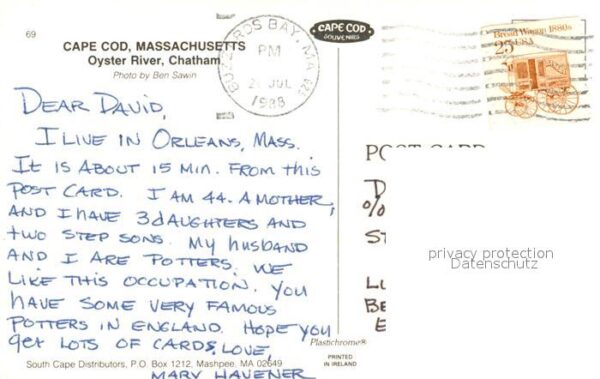 69
CAPE COD, MASSACHUSETTS
Oyster River, Chatham
Photo by Ben Sawin
BUZZARDS BAY, MA 025
PM
JUL
1988
CAPE COD
SOUVENIRS
Bread Wagon 1880s
25 USA
DEAR DAVID,
I LIVE IN ORLEANS, MASS.
IT IS ABOUT 15 MIN. FROM this
POST CARD. I AM 44. A MOTHER,
AND I HAVE 3 dAUGHTERS AND
tWO STEP SONS. My husbAND
AND I ARE POTTERS. WE
LIKE THIS OCCUPATION. YOU
HAVE SOME VERY FAMOUS
POTTERS IN ENGLAND. HOPE YOU
get LOTS OF CARDS. LOVE,
MARY HAVENER
Plastichrome®
South Cape Distributors, P.O. Box 1212, Mashpee, MA 02649
PRINTED
IN IRELAND
D
%
ST
LU
BE
E
privacy protection
Datenschutz